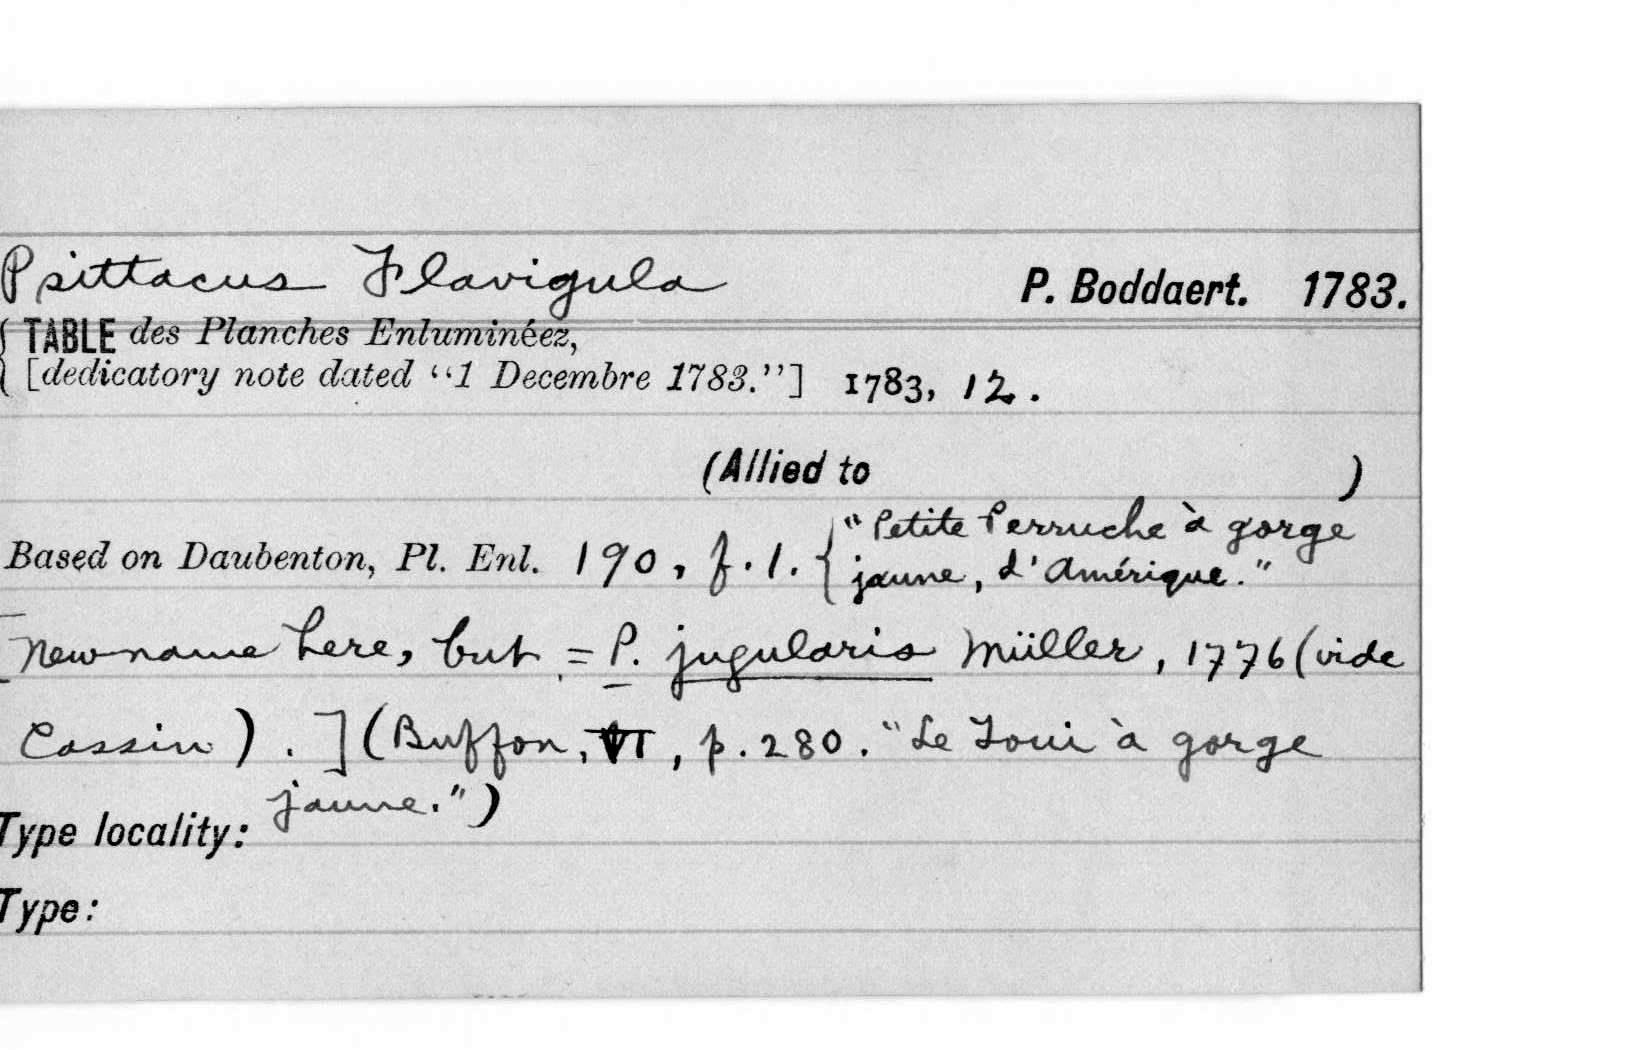 Psittacus Flavigula P. Boddaert. 1783.
{ TABLE des Planches Enluminéez,
[dedicatory note dated "1 Decembre 1783."] 1783, 12.
(Allied to )
"Petite Perruche à gorge
Based on Daubenton, Pl. Enl. 190, f. 1. { jaune, d'Amérique."
[New name here, but = P. jugularis Müller, 1776 (vide
Cassin). ] (Buffon, VI, p. 280. "Le Toui à gorge
jaune.")
Type locality:
Type: